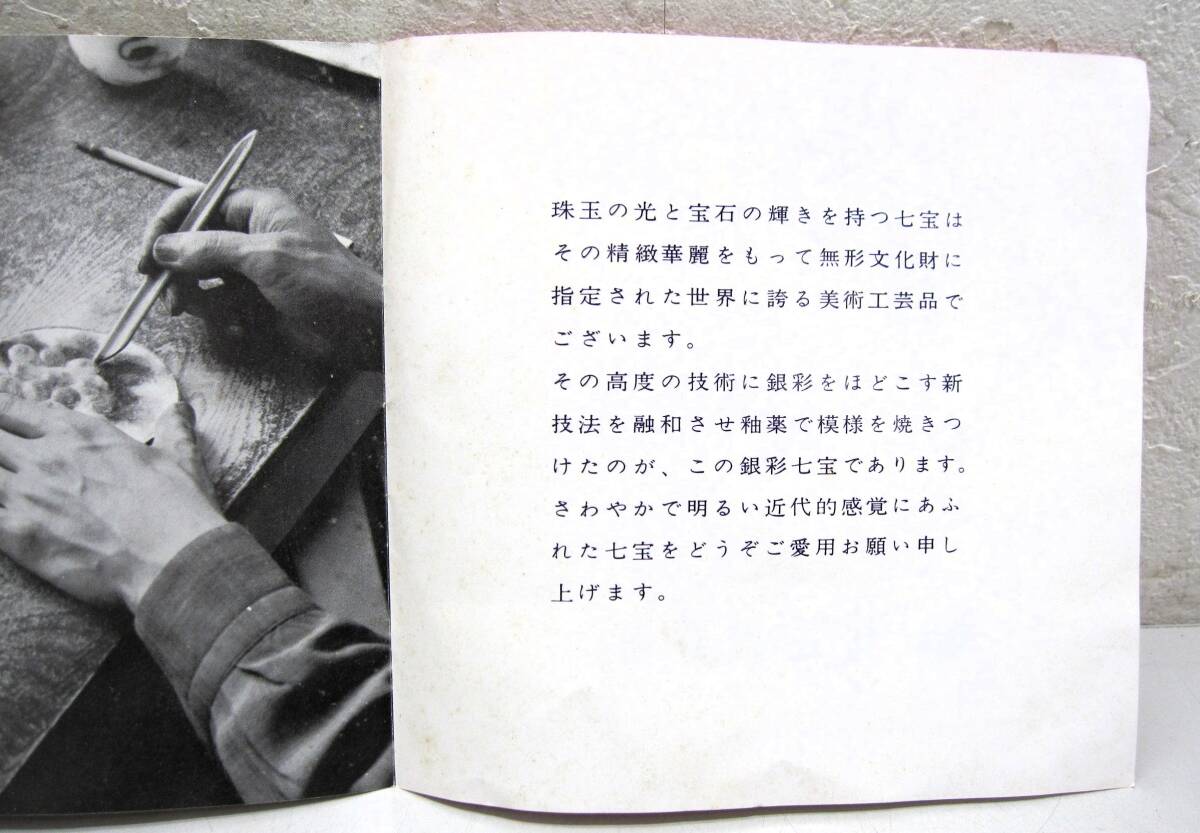 珠玉の光と宝石の輝きを持つ七宝は
その精緻華麗をもって無形文化財に
指定された世界に誇る美術工芸品で
ございます。
その高度の技術に銀彩をほどこす新
技法を融和させ釉薬で模様を焼きつ
けたのが、この銀彩七宝であります。
さわやかで明るい近代的感覚にあふ
れた七宝をどうぞご愛用お願い申し
上げます。